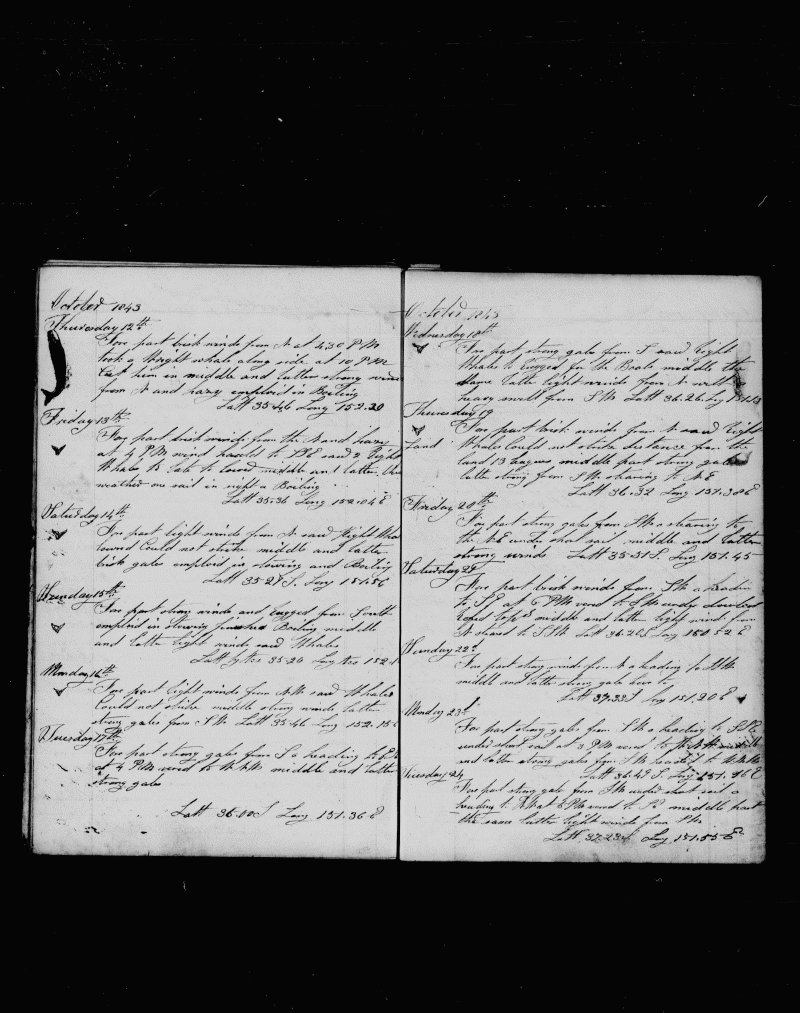 October 1843
Thursday 12th
Fore part brisk winds from N at 4.30 PM
took a Wright whale along side at 10 PM
Cut him in middle and latter strong winds
from N and hazy employd in Boiling
Latt 35-46 Long 152.20
Friday 13th
Fore part brisk winds from the N and hazy
at 4 PM wind hauld to saw 2 Right
Whales to late to lowerd middle and latter
weather one sail in sight a Boiling
Latt 35.36 Long 152.04 E
Saturday 14th
Fore part light winds from N saw Right Wha
lowerd Could not strike middle and latter
brisk gales employd in stowing and Boiling
Latt 35-27 S. Long 151.56
Sunday 15th
Fore part strong winds and rugged from South
employd in stowing finished Boiling middle
and latter light winds saw Whales
Latt by 35-20 Long 152.1
Monday 16th
Fore part light winds from saw Whales
Could not strike middle strong winds latter
strong gales from SW Latt 35.46 Long 152.15 E
Tuesday 17th
Fore part strong gales from S a heading to
at 4 PM wered to middle and latter
strong gales
Latt 36.00 S Long 151.36 E
October 1843
Wednesday 18th
Fore part strong gales from S saw Right
Whales to rugged for the Boats middle the
same latter light winds from N with a
heavy swell from SW Latt 36.26 Long
Thursday 19
Fore part brisk winds from N saw Right
Land
Whales Could not strike distance from the
land 13 leagues middle part strong gales
latter strong from SW steering to NE
Latt 36.32 Long 151.30 E
Friday 20th
Fore part strong gales from SW a steering to
the NE under short sail middle and latter
strong winds Latt 35-51 S. Long 151.45
Saturday 21
Fore part brisk winds from SW a heading
to SE at 6 PM wered to
middle and latter light winds from
N steerd to SSW Latt 36.26 S Long 150.52 E
Sunday 22d
Fore part strong winds from N a heading to
middle and latter strong gales
Latt 37.33 S Long 151.20 E
Monday 23d
Fore part strong gales from SW a heading to
under short sail at 3 PM wered to middle
and latter strong gales from SW headed to
Latt 36.45 S. Long 151.36 E
Tuesday 24
Fore part strong gales from SW under short sail a
heading to at 6 PM wered to middle part
the same latter light winds from SW
Latt 37.23 S Long 151.55 E